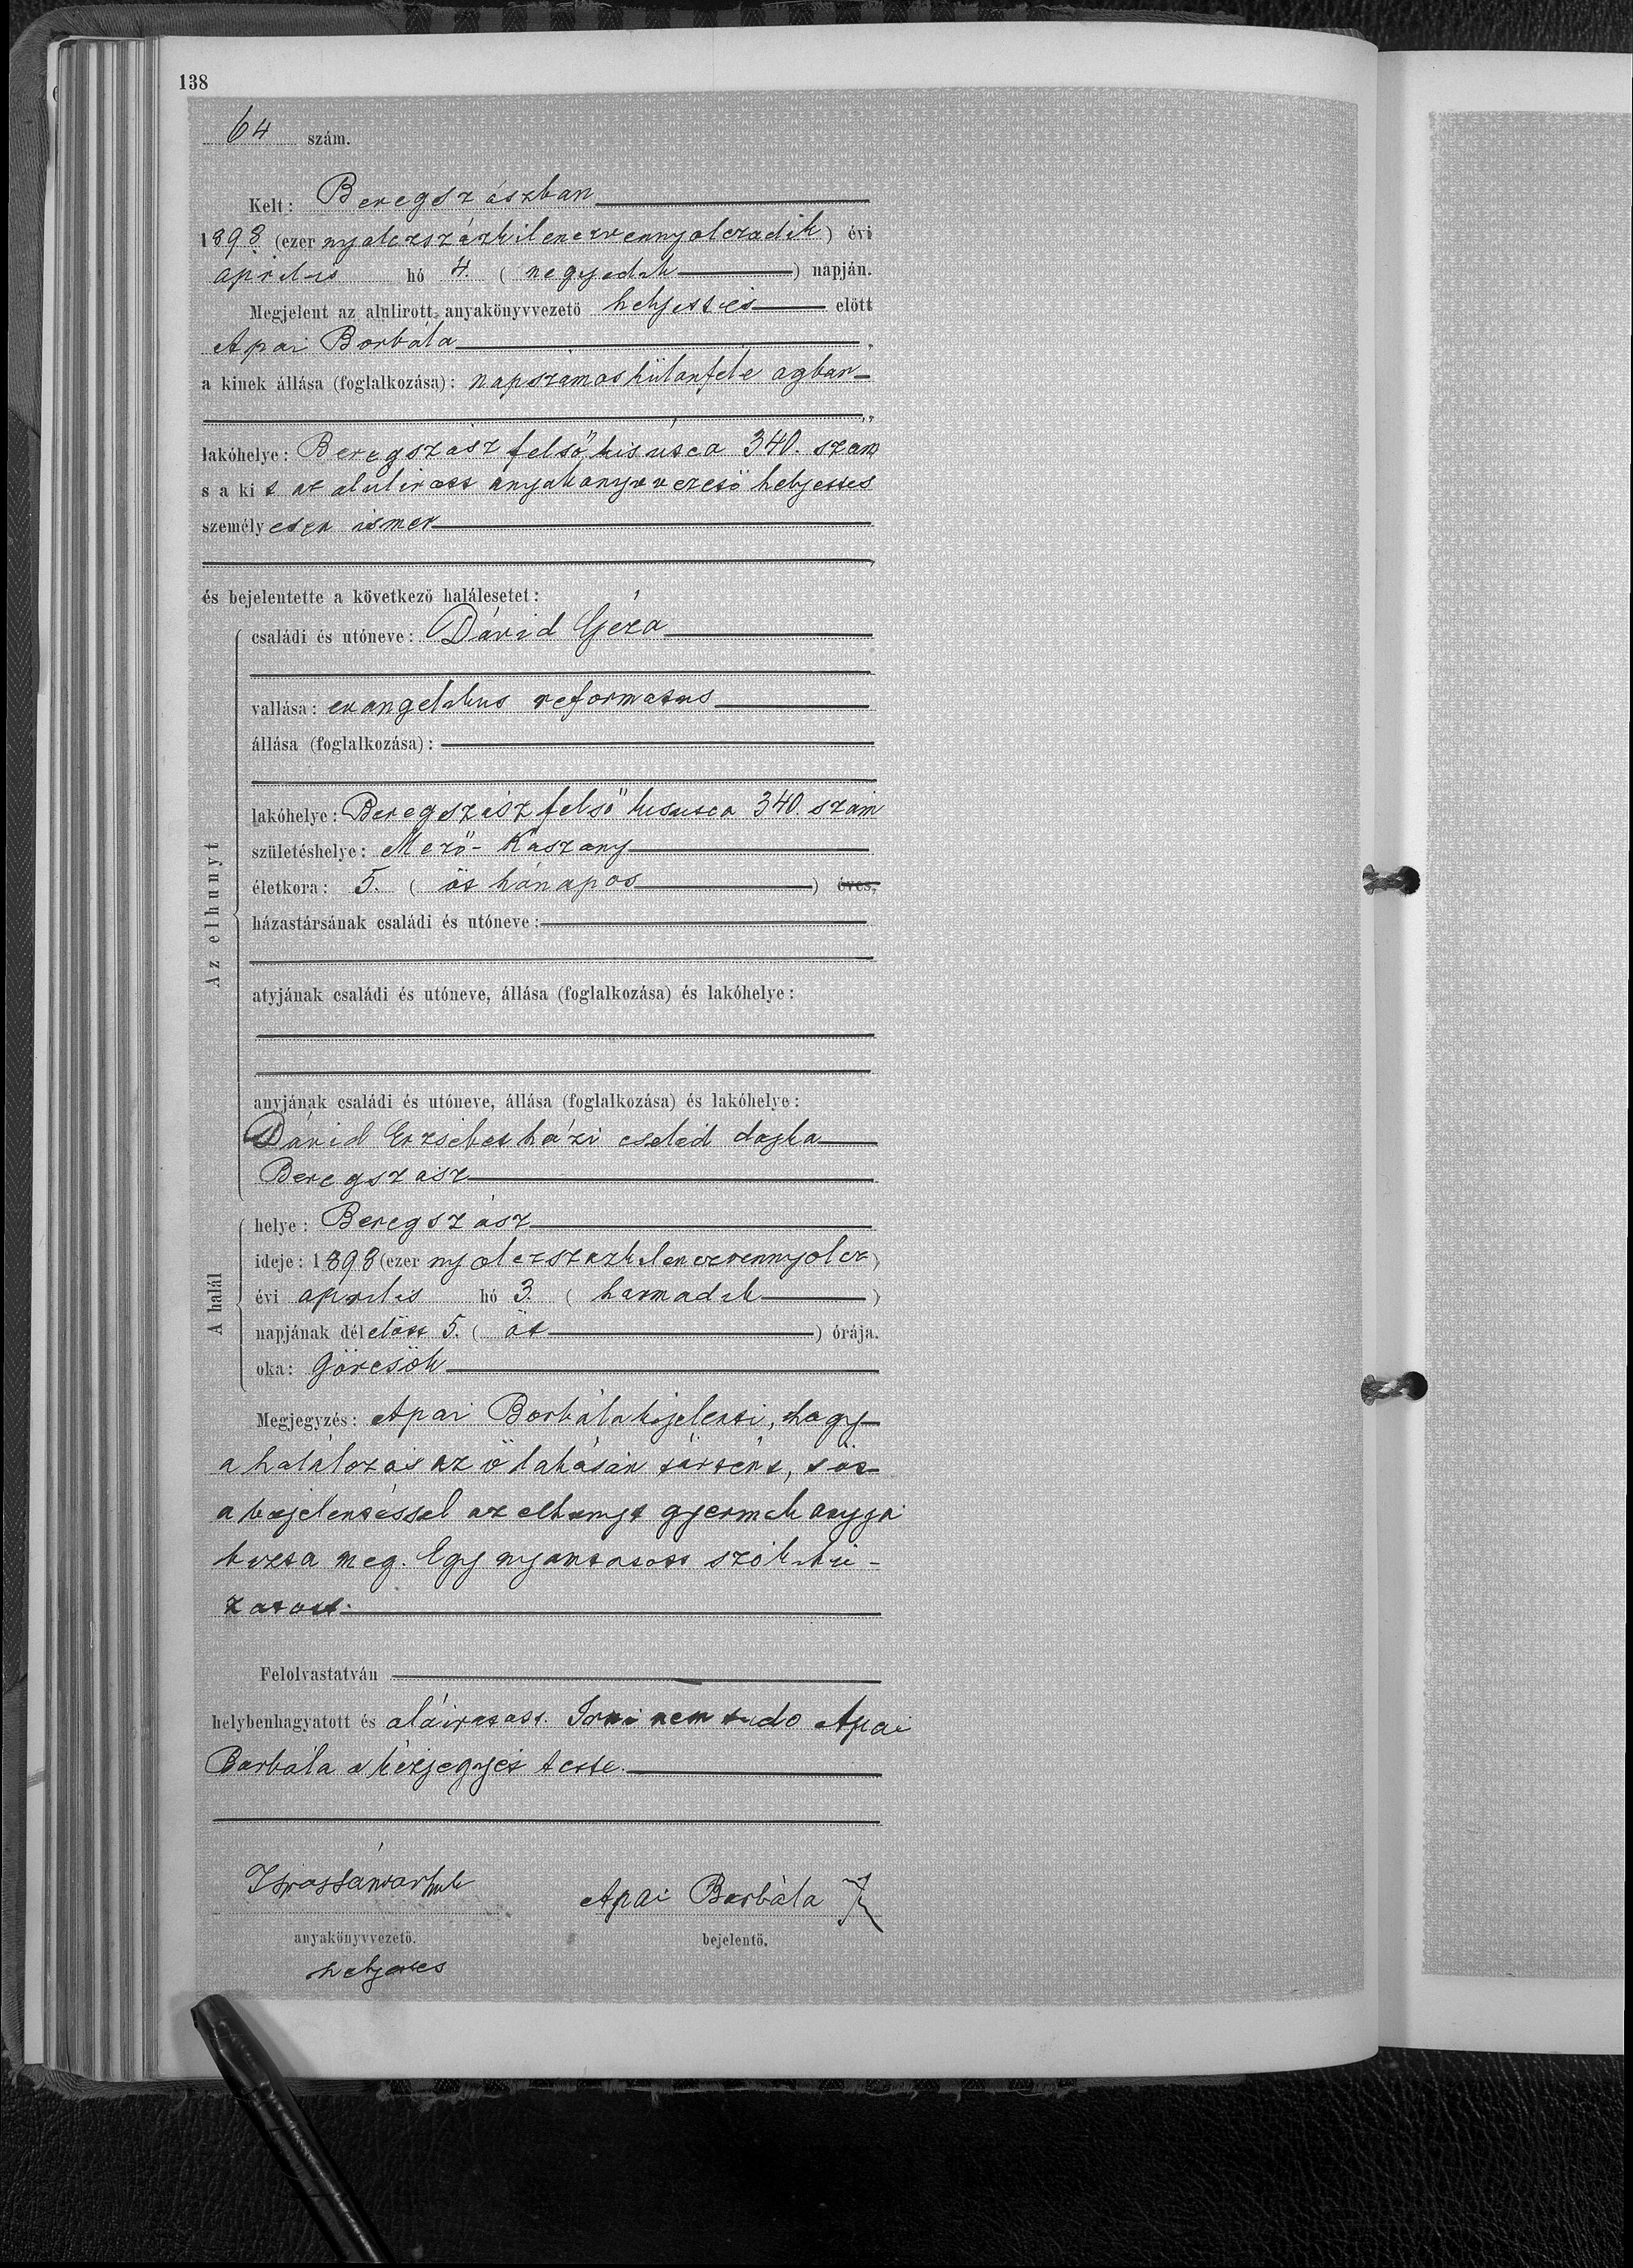 138
64 szám.
Kelt: Beregszászban
1898 (ezer nyolczszázkilenczvennyolczadik) évi
április hó 4. (negyedik) napján.
Megjelent az alulirott anyakönyvvezető helyettes előtt
Apai Borbála,
a kinek állása (foglalkozása): napszámos különféle ágban
lakóhelye: Beregszász felső kis utca 340. szám
s a kit az alulirott anyakönyvvezető helyettes
személyesen ismer
és bejelentette a következő halálesetet:
Az elhunyt
családi és utóneve: Dávid Géza
vallása: evangelikus reformatus
állása (foglalkozása):
lakóhelye: Beregszász felső kis utca 340. szám
születéshelye: Mező-Kászony
életkora: 5. (öt hónapos) éves,
házastársának családi és utóneve:
atyjának családi és utóneve, állása (foglalkozása) és lakóhelye:
anyjának családi és utóneve, állása (foglalkozása) és lakóhelye:
Dávid Erzsébet házi cseléd dajka
Beregszász
A halál
helye: Beregszász
ideje: 1898 (ezer nyolczszázkilenczvennyolcz)
évi április hó 3. (harmadik)
napjának délelőtt 5. (öt) órája.
oka: Görcsök
Megjegyzés: Apai Borbála kijelenti, hogy
a halálozás az ő lakásán történt, s őt
a bejelentéssel az elhunyt gyermek anyja
bizta meg. Egy nyomtatott szó kihú-
zatott.
Felolvastatván
helybenhagyatott és aláiratott. Irni nem tudó Apai
Borbála a kézjegyét tette.
Apai Borbála
anyakönyvvezető. bejelentő.
helyettes